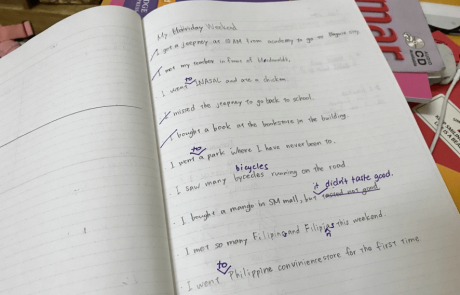 My Weekend
I got a jeepney at 9 AM from academy to go to city.
I met my teacher in front of
I went to INASAL and ate a chicken.
I missed the jeepney to go back to school.
I bought a book at the bookstore in the building.
I went to a park where I have never been to.
bicycles
I saw many bycecles running on the road
it didn't taste good.
I bought a mango in SM mall, but tasted not good
I met so many and this weekend.
to
I went Philippine conviniencestore for the first time
mar